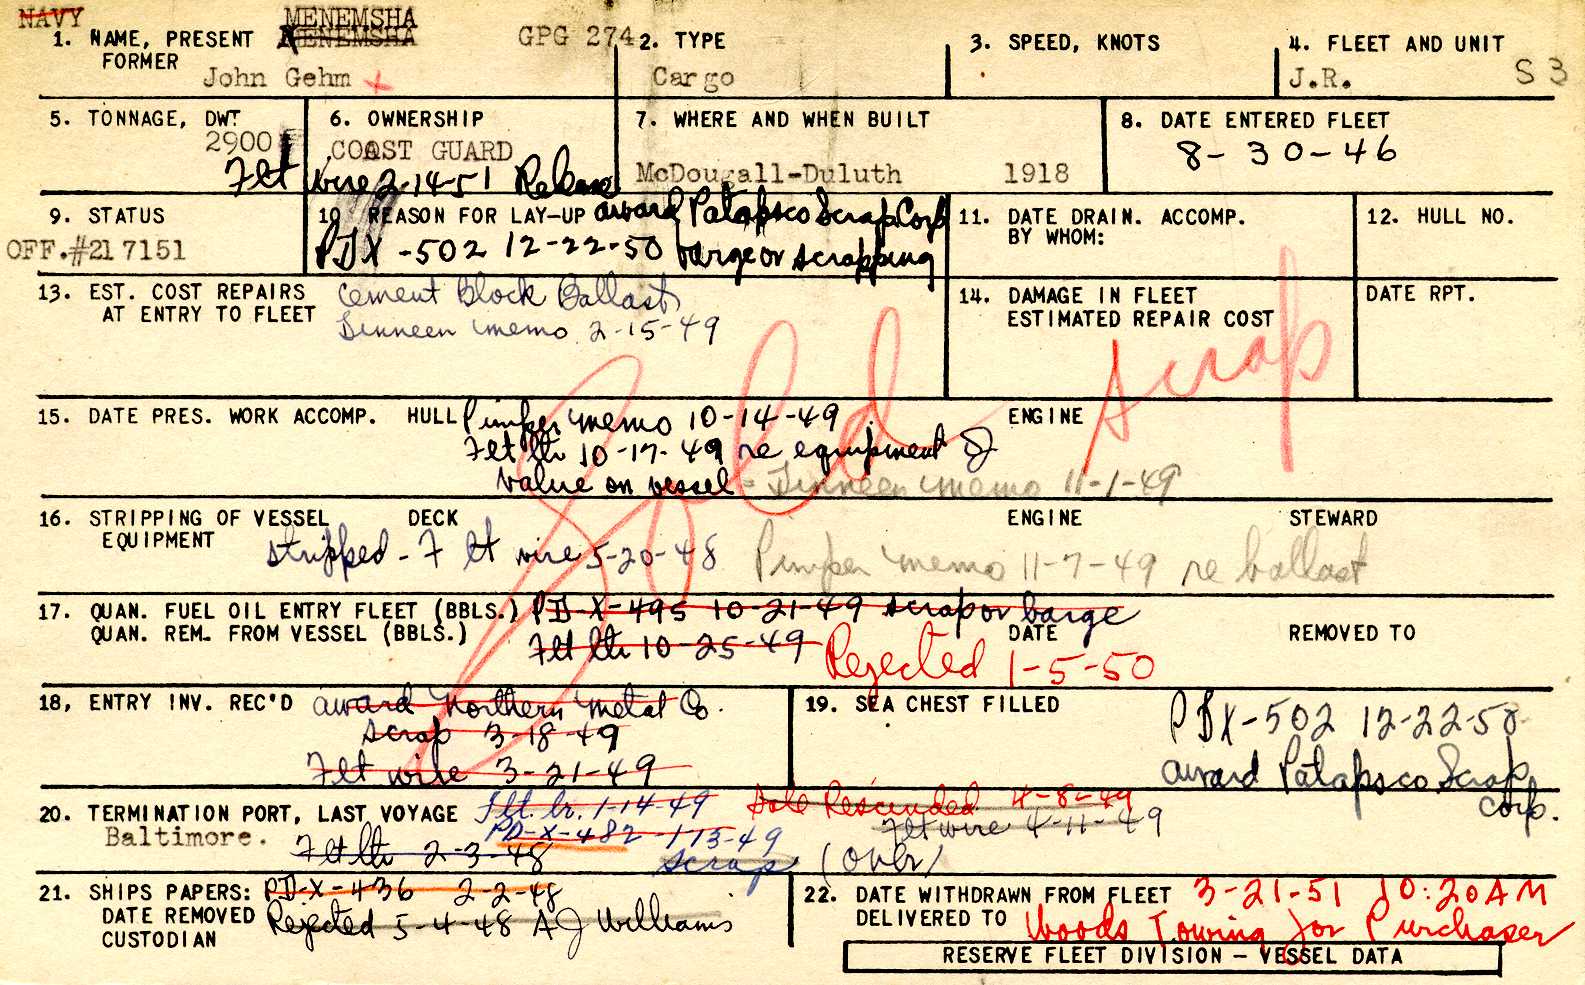 NAVY MENEMSHA
1. NAME, PRESENT MENEMSHA GPG 274
FORMER John Gehm
2. TYPE
Cargo
3. SPEED, KNOTS
4. FLEET AND UNIT
J.R. S3
5. TONNAGE, DWT
2900
6. OWNERSHIP
COAST GUARD
7. WHERE AND WHEN BUILT
McDougall-Duluth 1918
8. DATE ENTERED FLEET
8-30-46
Flt wire 2-14-51 Release
9. STATUS
OFF.#217151
10 REASON FOR LAY-UP award Patapsco Scrap Corp
PDX-502 12-22-50 barge or scrapping
11. DATE DRAIN. ACCOMP.
BY WHOM:
12. HULL NO.
13. EST. COST REPAIRS
AT ENTRY TO FLEET
Cement Block Ballast
Dinneen memo 2-15-49
14. DAMAGE IN FLEET
ESTIMATED REPAIR COST
DATE RPT.
Sold Scrap
15. DATE PRES. WORK ACCOMP. HULL Pimper memo 10-14-49 ENGINE
Flt ltr 10-17-49 re equipment of
value on vessel - Dinneen memo 11-1-49
16. STRIPPING OF VESSEL DECK ENGINE STEWARD
EQUIPMENT
stripped - Flt wire 5-20-48 Pimper memo 11-7-49 re ballast
17. QUAN. FUEL OIL ENTRY FLEET (BBLS.) PD-X-495 10-21-49 scrap or barge
QUAN. REM. FROM VESSEL (BBLS.) DATE REMOVED TO
Flt ltr 10-25-49 Rejected 1-5-50
18, ENTRY INV. REC'D award Northern Metal Co.
scrap 3-18-49
Flt wire 3-21-49
19. SEA CHEST FILLED
PDX-502 12-22-50
award Patapsco Scrap
Corp.
20. TERMINATION PORT, LAST VOYAGE Flt. ltr. 1-14-49 Sale Rescinded 4-8-49
Baltimore. PD-X-482 -1-13-49 Flt wire 4-11-49
Flt ltr 2-3-48 scrap (over)
21. SHIPS PAPERS: PD-X-436 2-2-48
DATE REMOVED Rejected 5-4-48 A J Williams
CUSTODIAN
22. DATE WITHDRAWN FROM FLEET 3-21-51 10:20 AM
DELIVERED TO Woods Towing for Purchaser
RESERVE FLEET DIVISION – VESSEL DATA